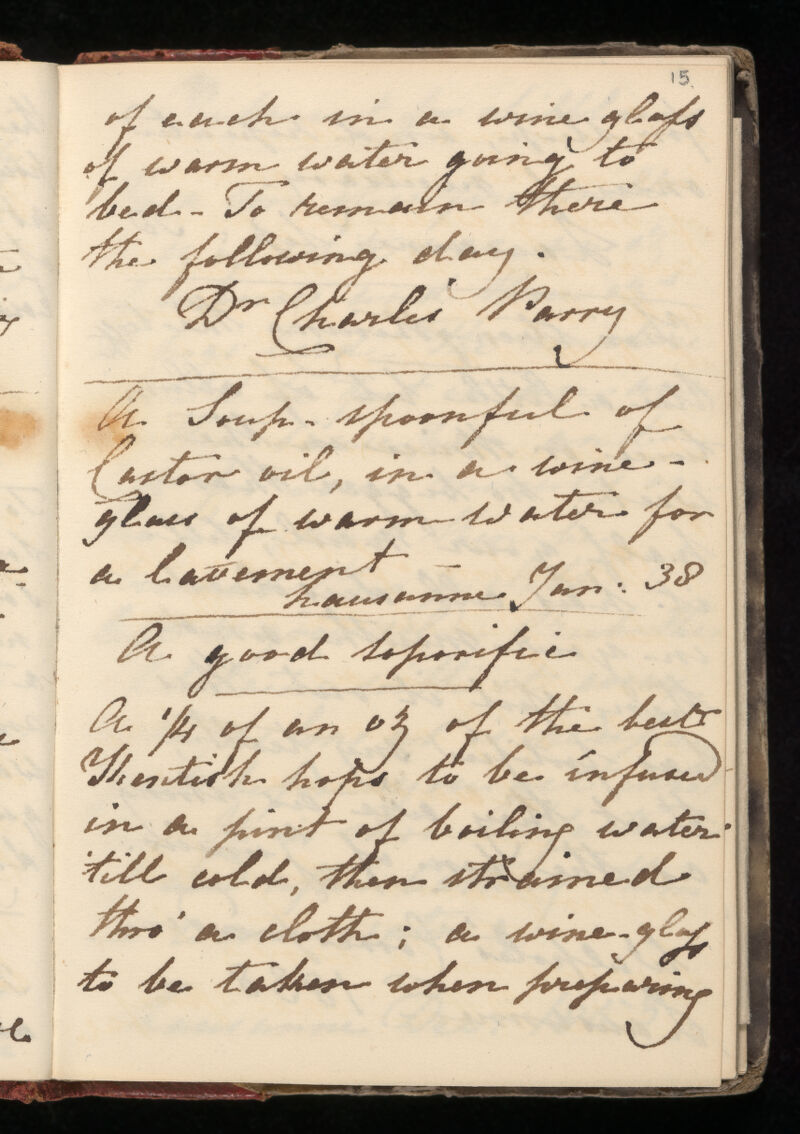 15
of each in a wine glass
of warm water going to
bed - To remain there
the following day.
Dr Charles Parry
A Soup-spoonful of
Castor oil, in a wine-
glass of warm water for
a lavement
Lausanne Jan: 38
A good soporific
A 1/4 of an oz of the best
Kentish hops to be infused
in a pint of boiling water
'till cold, then strained
thro' a cloth; a wine-glass
to be taken when preparing